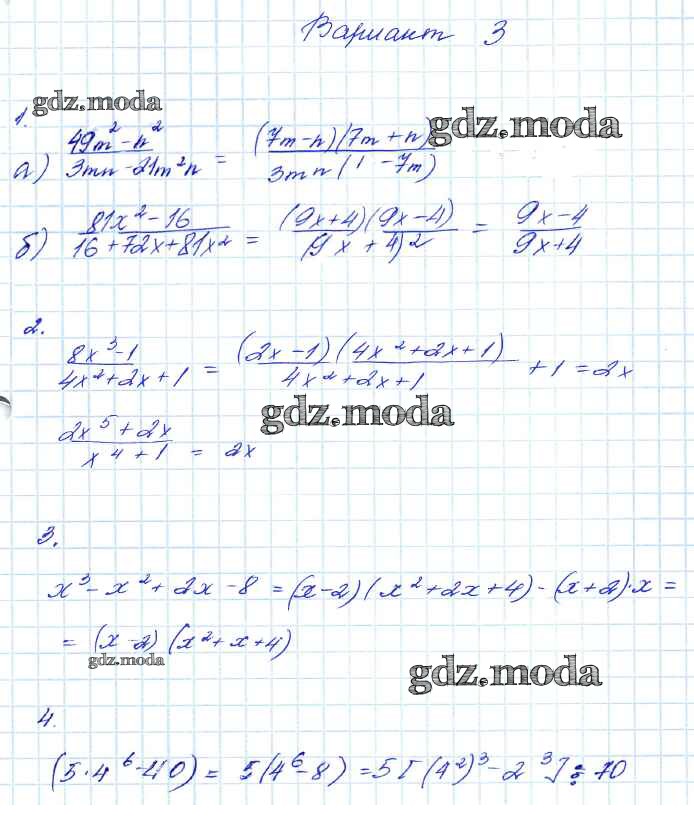 Вариант 3
gdz.moda
1.
gdz.moda
а) (49m² - n²)/(3mn - 21m²n) = (7m - n)(7m + n)/(3mn(1 - 7m))
б) (81x² - 16)/(16 + 72x + 81x²) = (9x + 4)(9x - 4)/(9x + 4)² = (9x - 4)/(9x + 4)
2.
(8x³ - 1)/(4x² + 2x + 1) = (2x - 1)(4x² + 2x + 1)/(4x² + 2x + 1) + 1 = 2x
gdz.moda
(2x⁵ + 2x)/(x⁴ + 1) = 2x
3.
x³ - x² + 2x - 8 = (x - 2)(x² + 2x + 4) - (x + 2)·x =
= (x - 2)(x² + x + 4)
gdz.moda
gdz.moda
4.
(5·4⁶ - 40) = 5(4⁶ - 8) = 5[(4²)³ - 2³] ⋮ 70